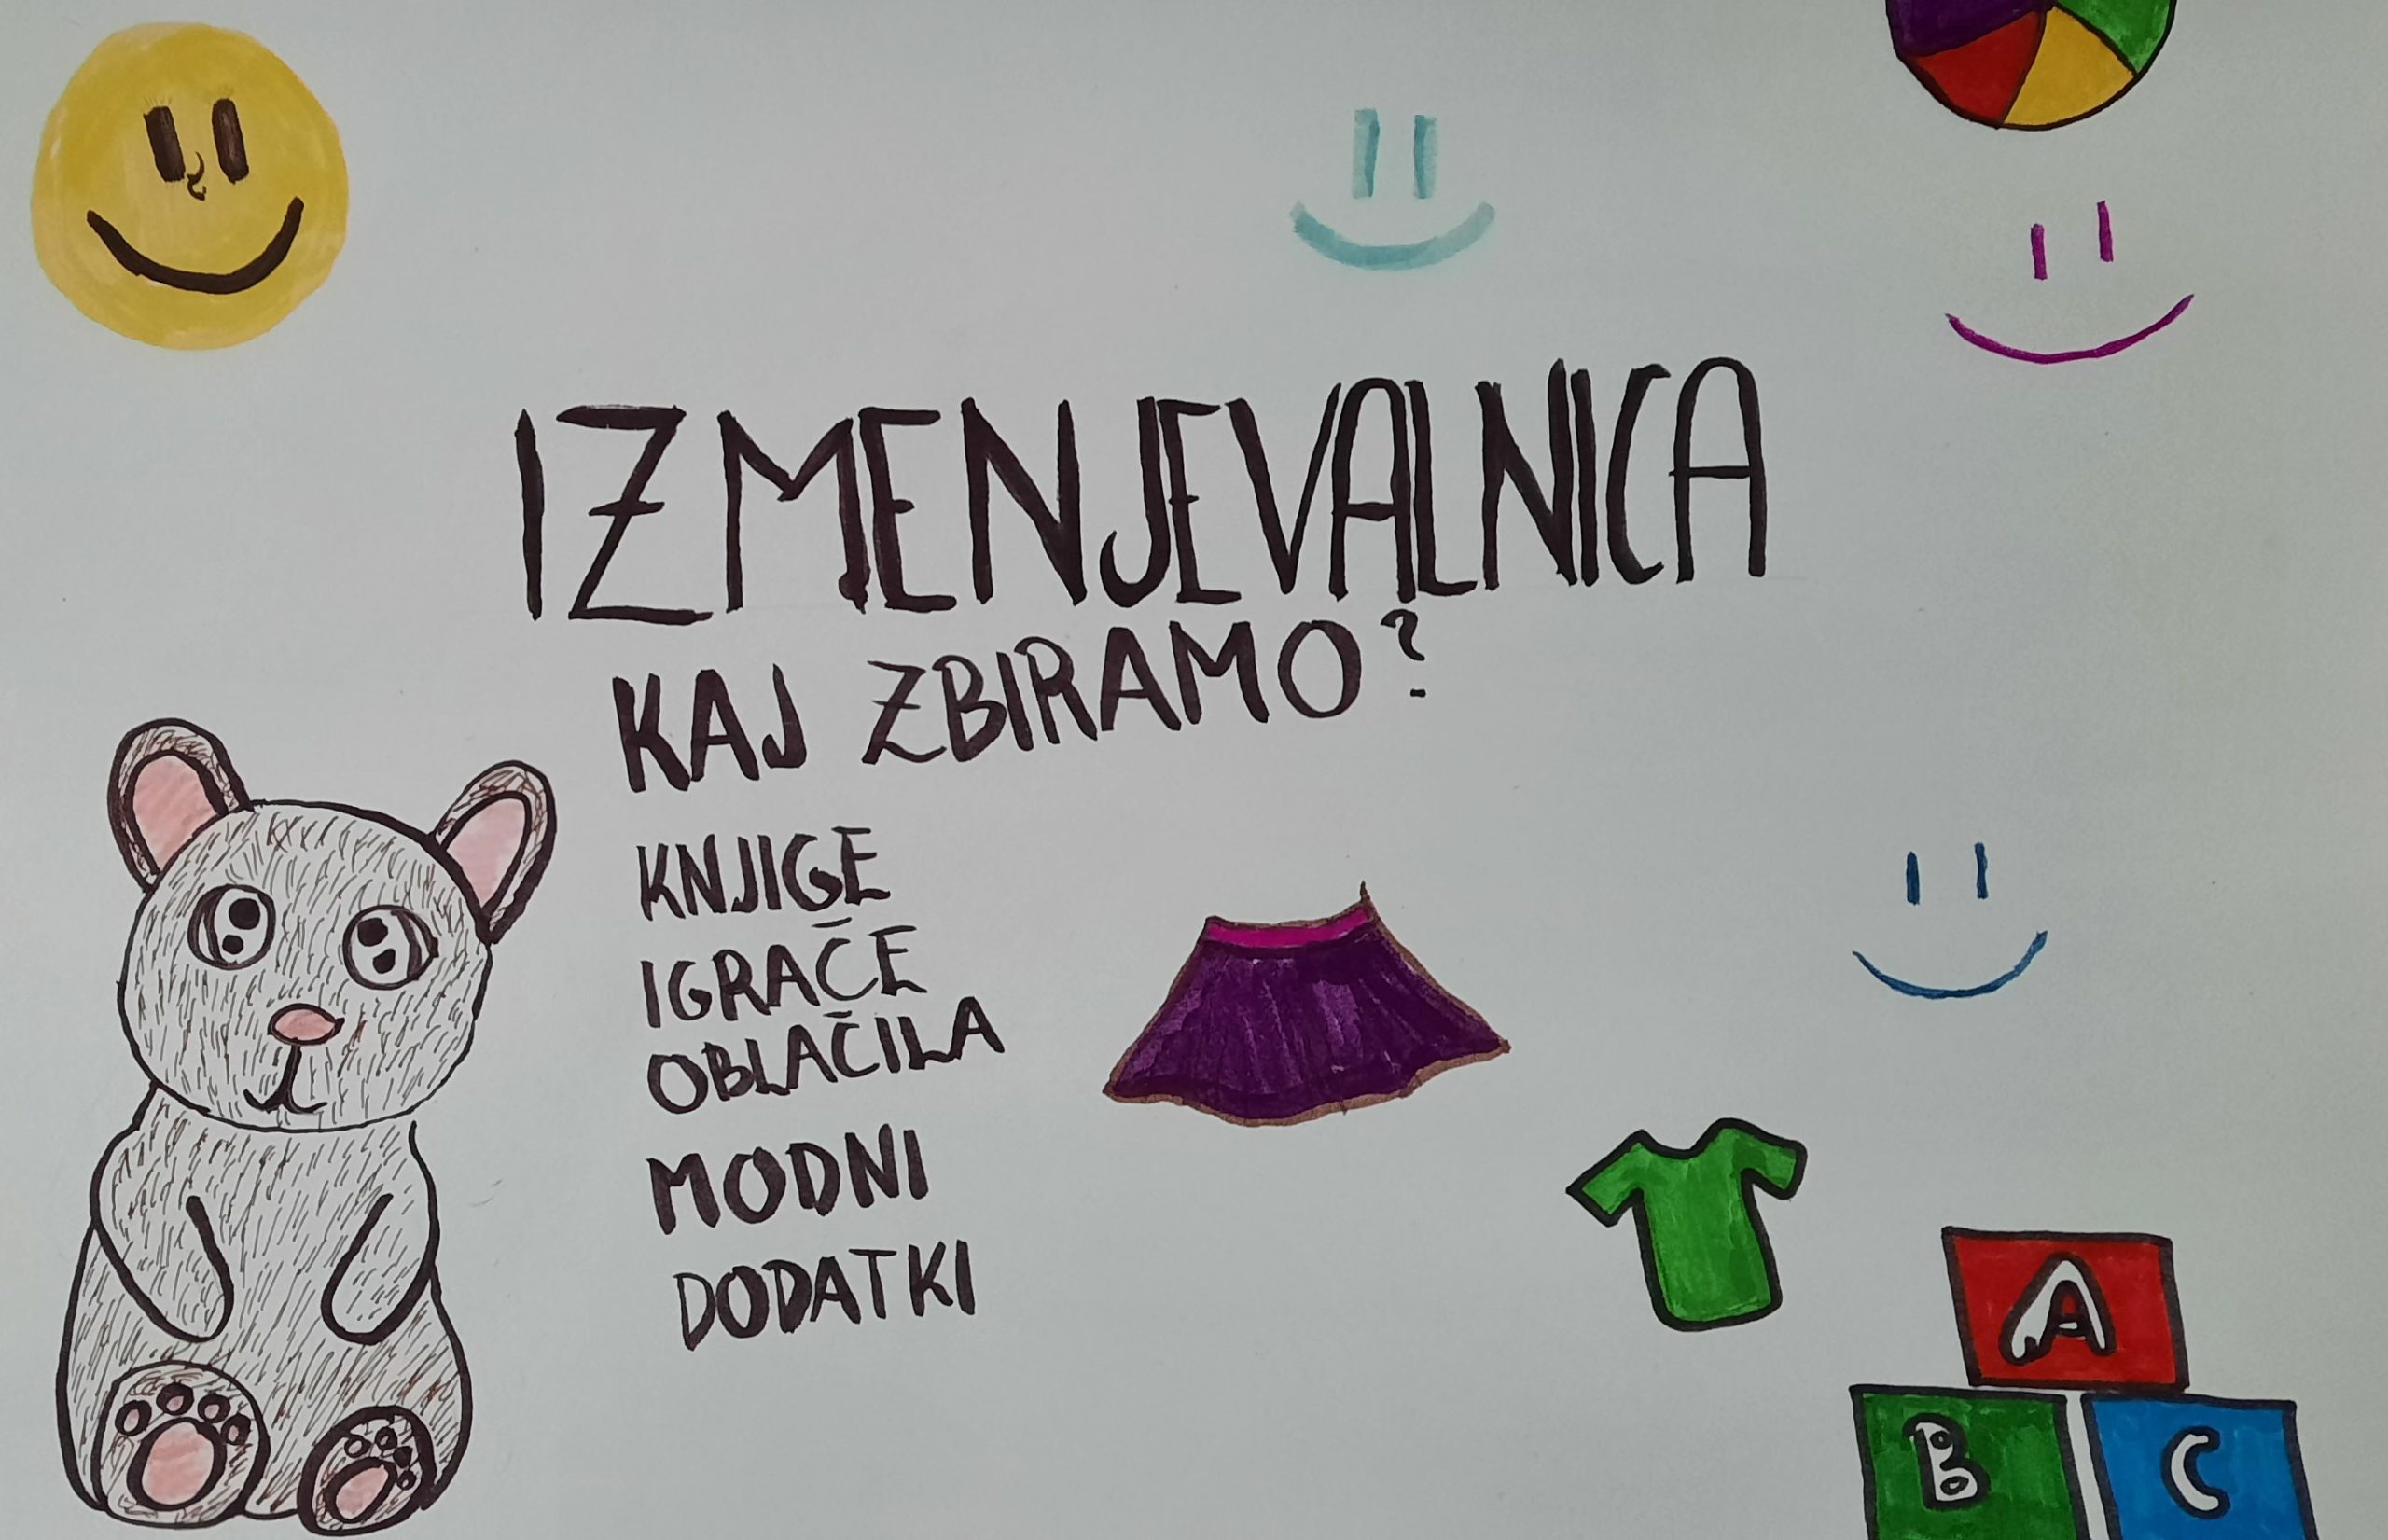 IZMENJEVALNICA
KAJ ZBIRAMO?
KNJIGE
IGRAČE
OBLAČILA
MODNI
DODATKI
A
B C